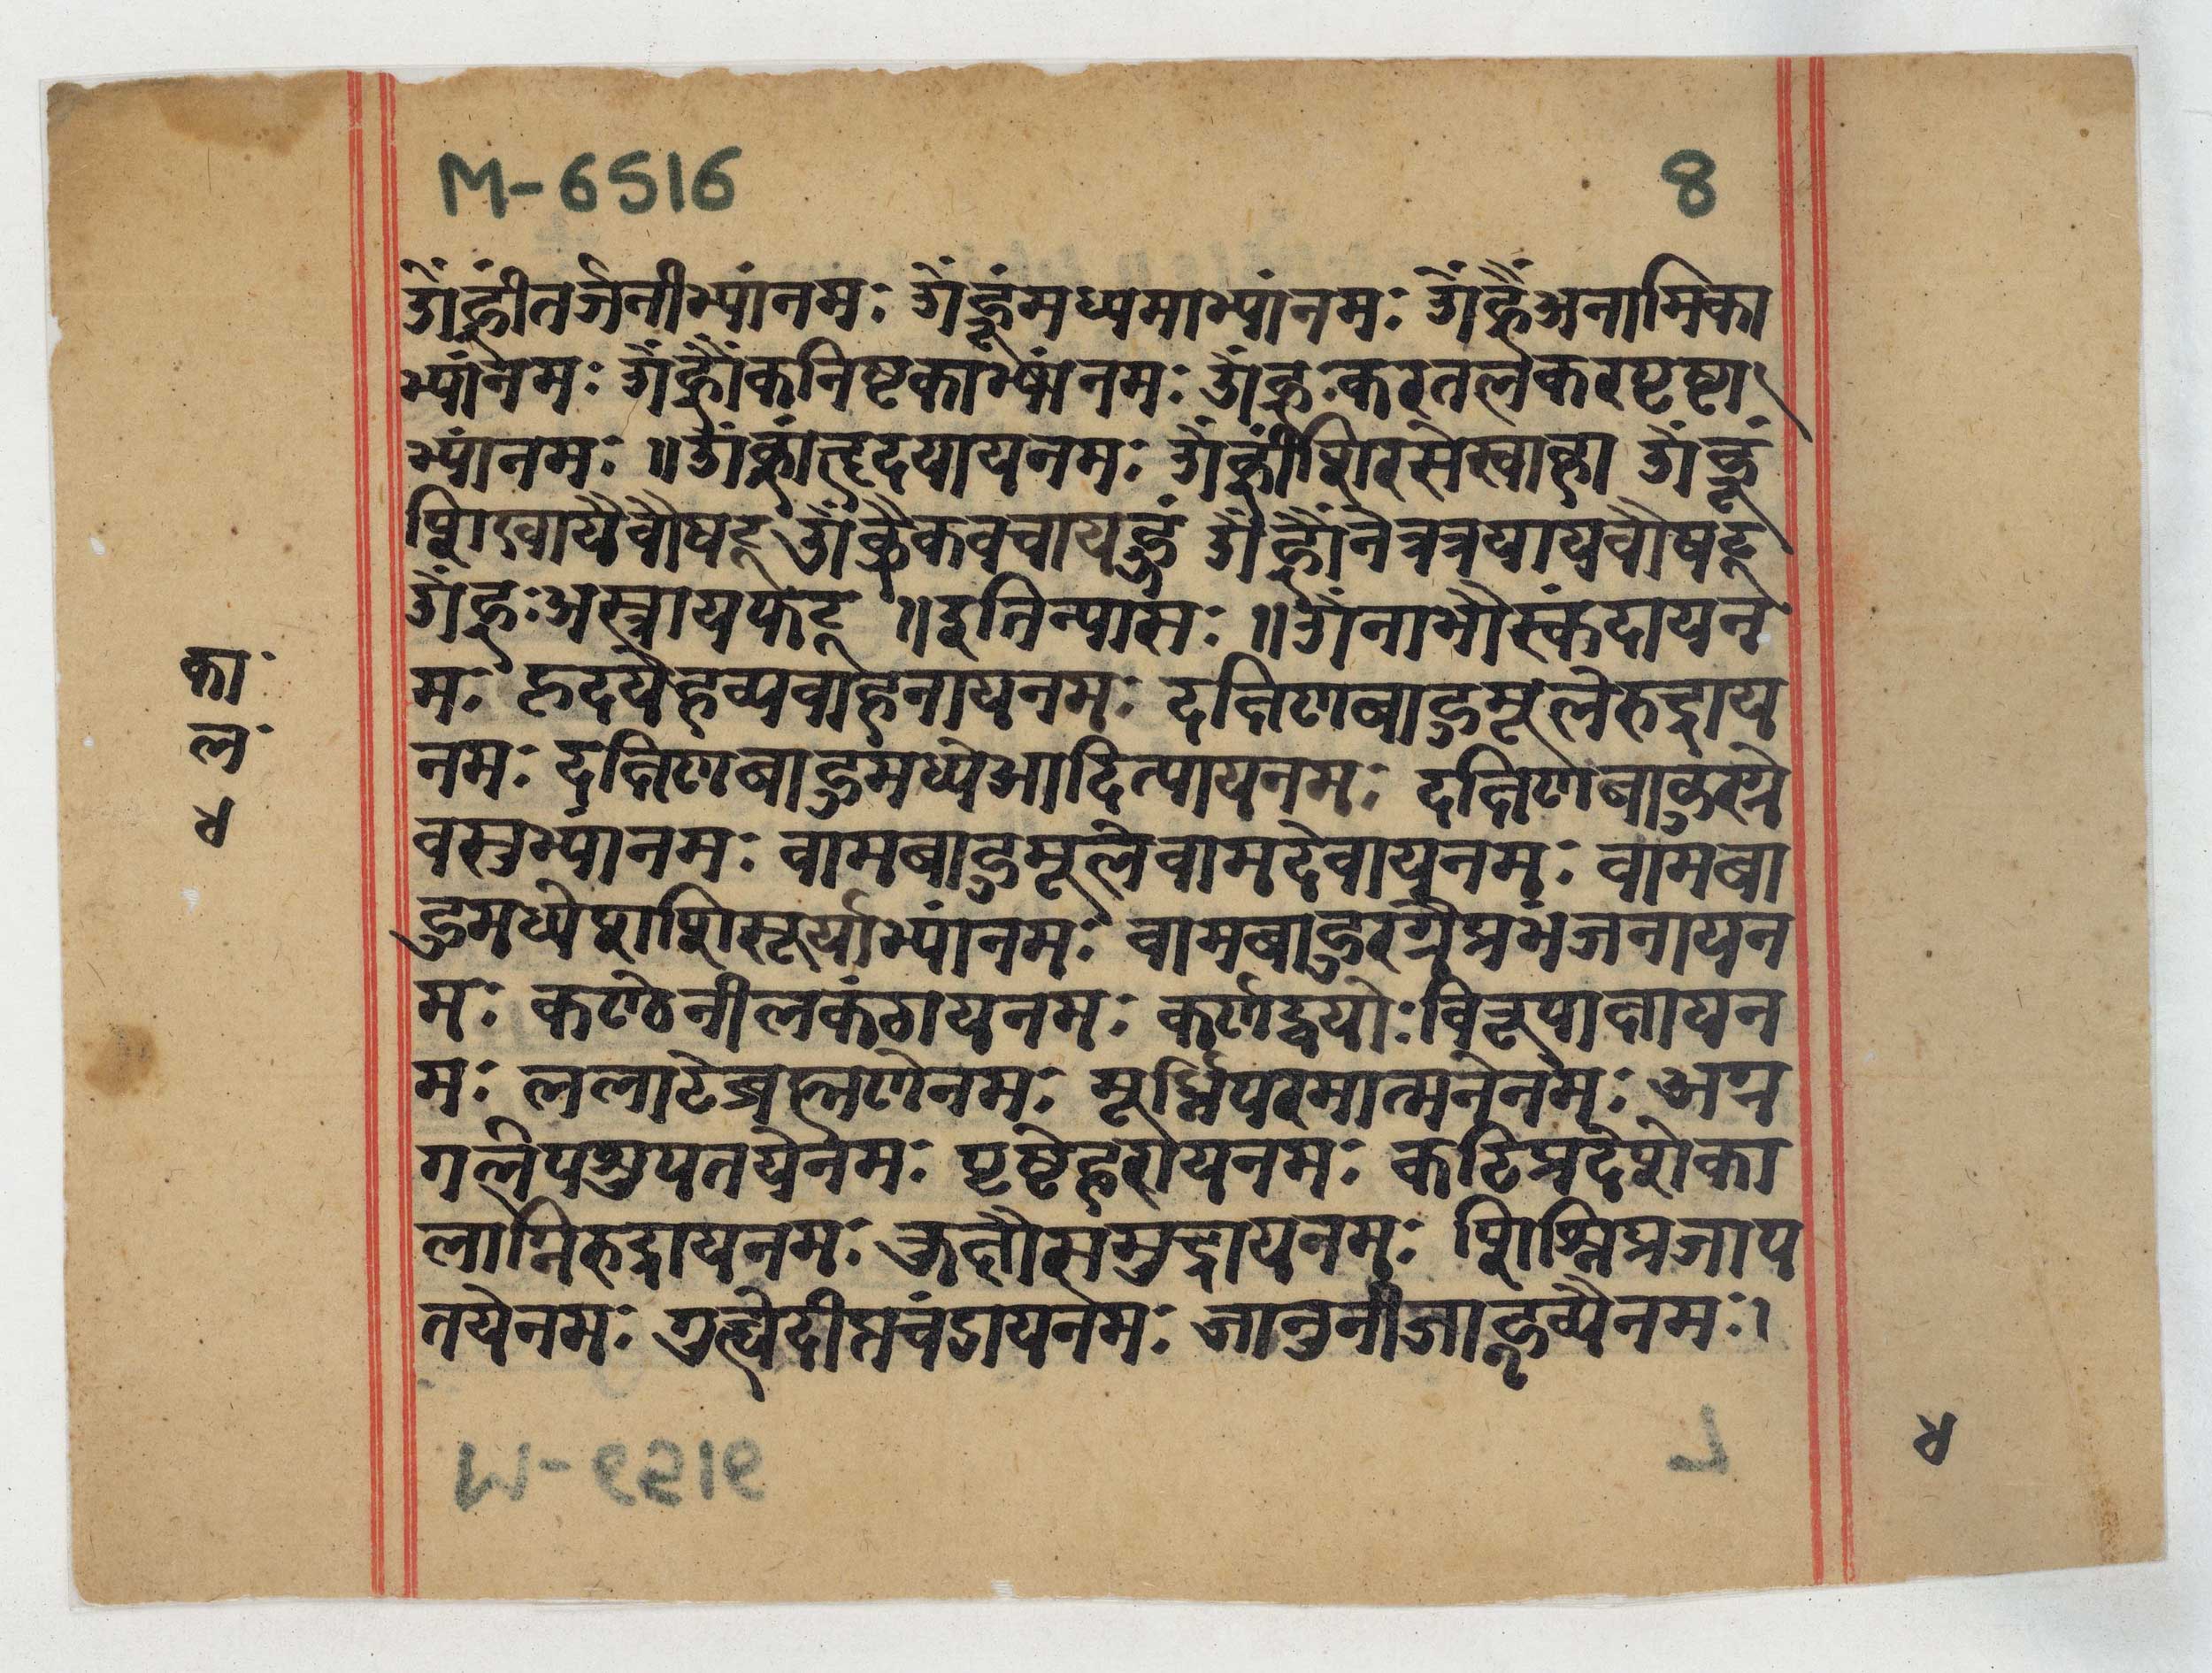 M-6516
8
ॐह्रींतर्जनीभ्यांनमः ॐह्रूंमध्यमाभ्यांनमः ॐह्रैंअनामिका
भ्यांनमः ॐह्रौंकनिष्टकाभ्यांनमः ॐह्रःकरतलकरपृष्टा
भ्यांनमः ॥ॐह्रांहृदयायनमः ॐह्रींशिरसेस्वाहा ॐह्रूं
शिखायैवौषट् ॐह्रैकवचायहुं ॐह्रौंनेत्रत्रयायवौषट्
ॐह्रःअस्त्रायफट् ॥इतिन्यासः ॥ॐनाभौस्कंदायन
मः हृदयेहव्यवाहनायनमः दक्षिणबाहुमूलेरुद्राय
नमः दक्षिणबाहुमध्येआदित्यायनमः दक्षिणबाहुरग्रे
वसुभ्यांनमः वामबाहुमूलेवामदेवायनमः वामबा
हुमध्येशशिसूर्याभ्यांनमः वामबाहुरग्रेप्रभंजनायन
मः कण्ठेनीलकंठायनमः कर्णद्वयोःविरूपाक्षायन
मः ललाटेब्रह्मणेनमः मूर्ध्निपरमात्मनेनमः अग्र
गलेपशुपतयेनमः पृष्टेहरायनमः कटिप्रदेशेका
लाग्निरुद्रायनमः कुक्षौसमुद्रायनमः शिश्निप्रजाप
तयेनमः गुह्येदीप्तचंडायनमः जानुनीजाह्नव्यैनमः।
काः
लः
४
४